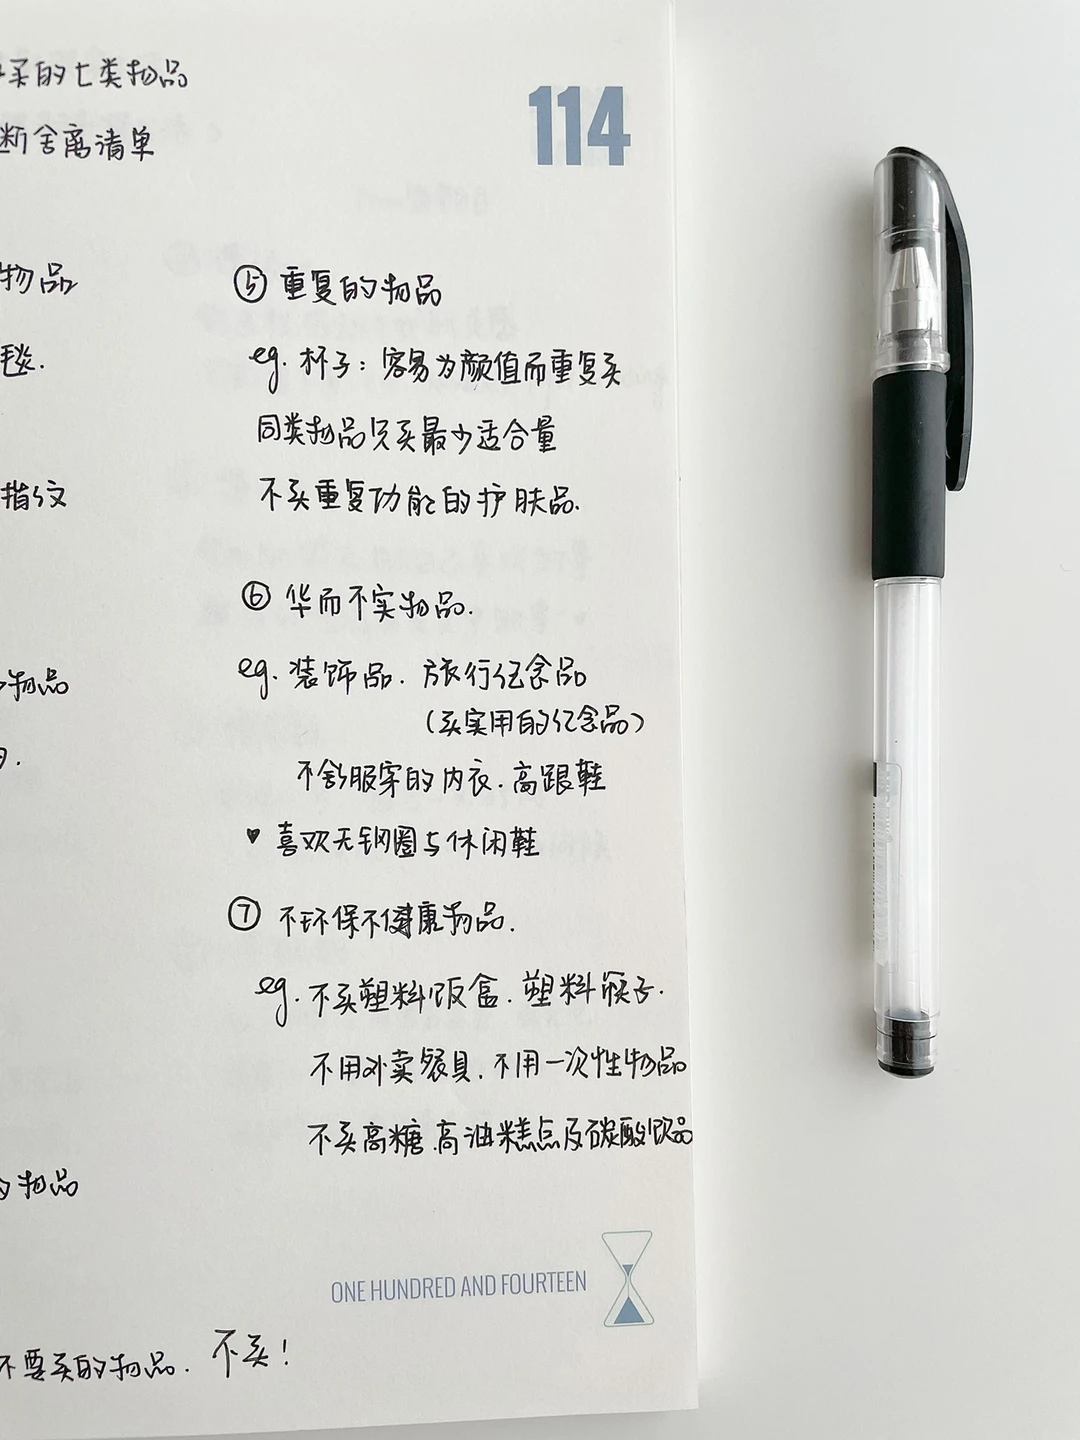 买的七类物品
断舍离清单
114
物品
毯.
指纹
物品
物品
⑤ 重复的物品
eg. 杯子：容易为颜值而重复买
同类物品只买最少适合量
不买重复功能的护肤品.
⑥ 华而不实物品.
eg. 装饰品. 旅行纪念品
（买实用的纪念品）
不舒服穿的内衣. 高跟鞋
♥ 喜欢无钢圈与休闲鞋
⑦ 不环保不健康物品.
eg. 不买塑料饭盒. 塑料筷子.
不用外卖餐具. 不用一次性物品
不买高糖.高油糕点及碳酸饮品
ONE HUNDRED AND FOURTEEN
不要买的物品. 不买！